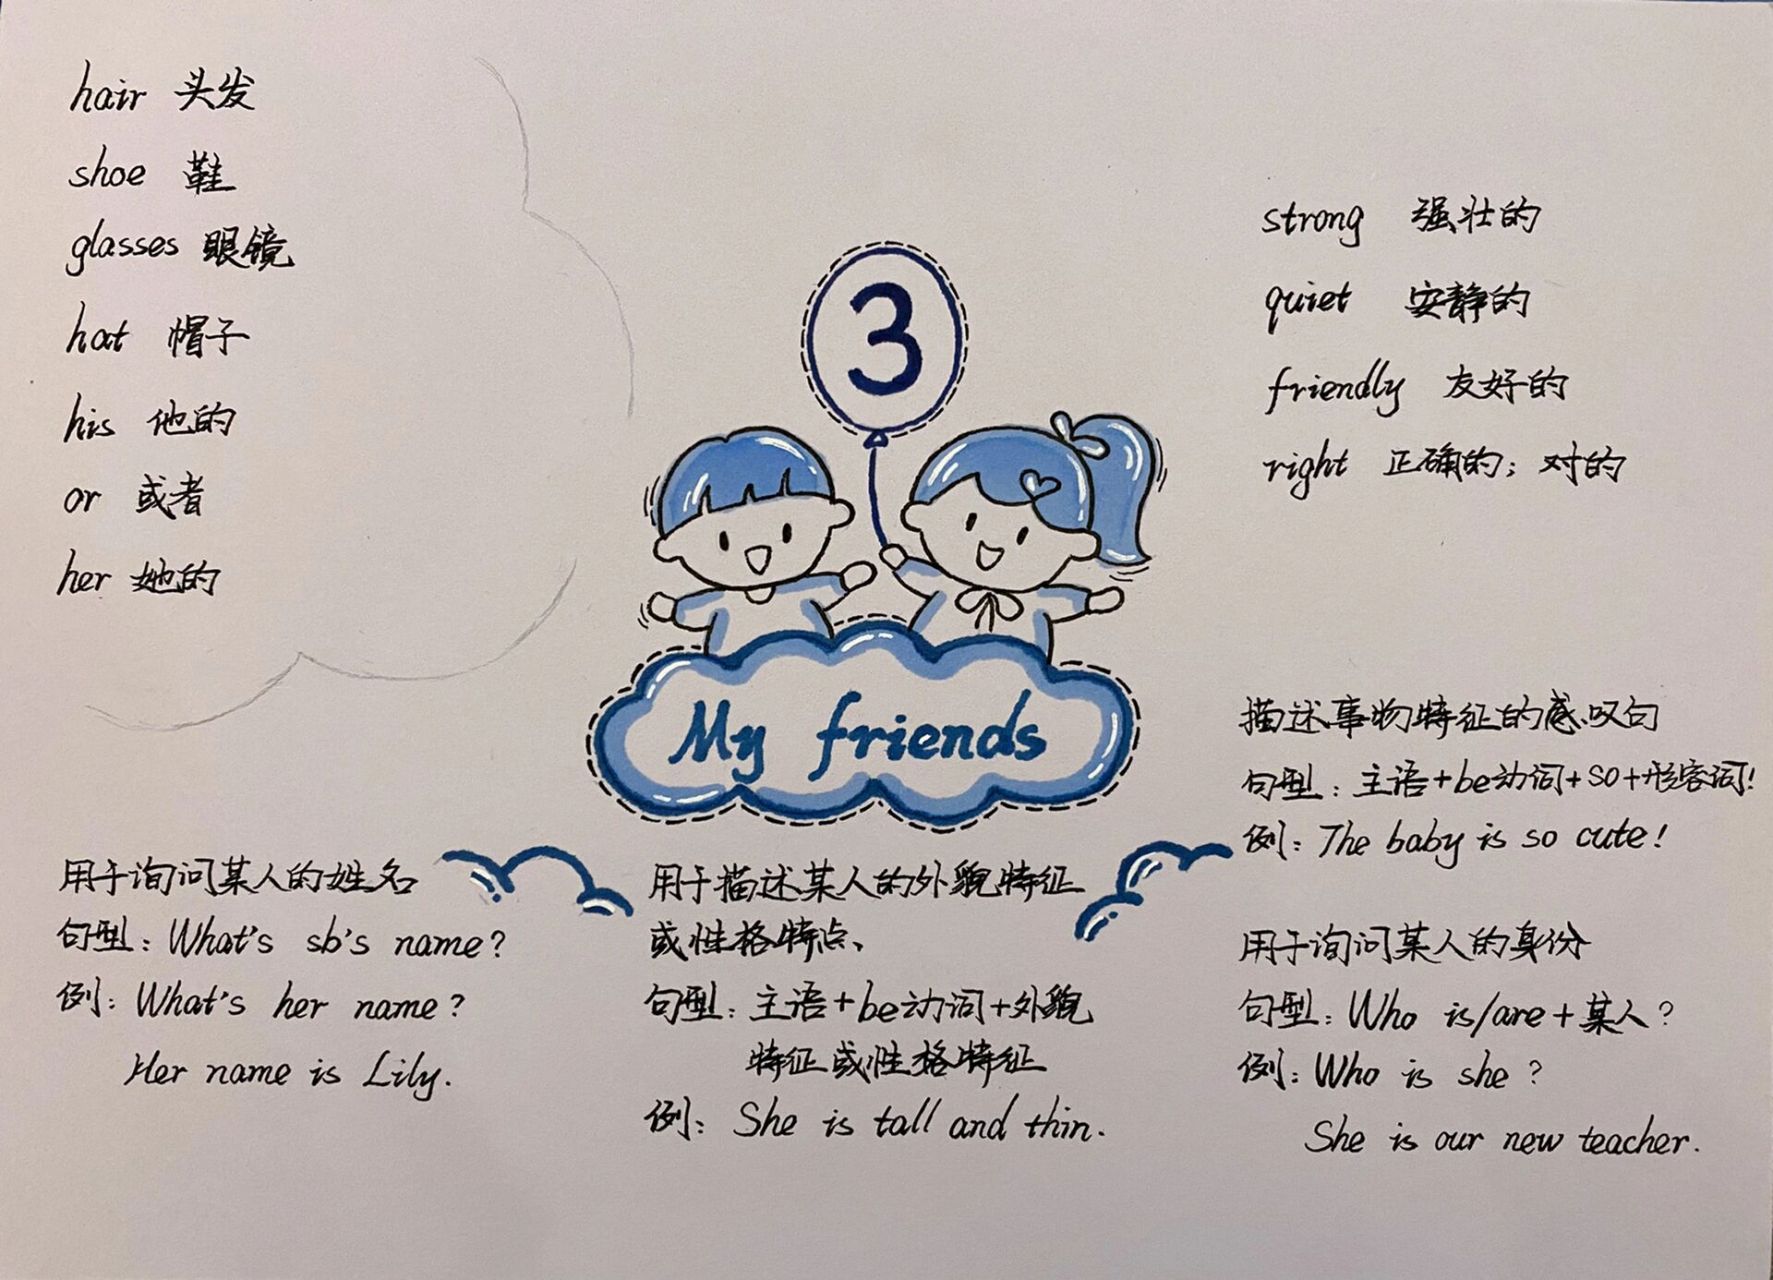 hair 头发
shoe 鞋
glasses 眼镜
hat 帽子
his 他的
or 或者
her 她的
3
My friends
strong 强壮的
quiet 安静的
friendly 友好的
right 正确的；对的
用于询问某人的姓名
句型：What's sb's name?
例：What's her name?
Her name is Lily.
用于描述某人的外貌特征
或性格特点、
句型：主语+be动词+外貌
特征或性格特征
例：She is tall and thin.
描述事物特征的感叹句
句型：主语+be动词+so+形容词!
例：The baby is so cute!
用于询问某人的身份
句型：Who is/are+某人?
例：Who is she?
She is our new teacher.